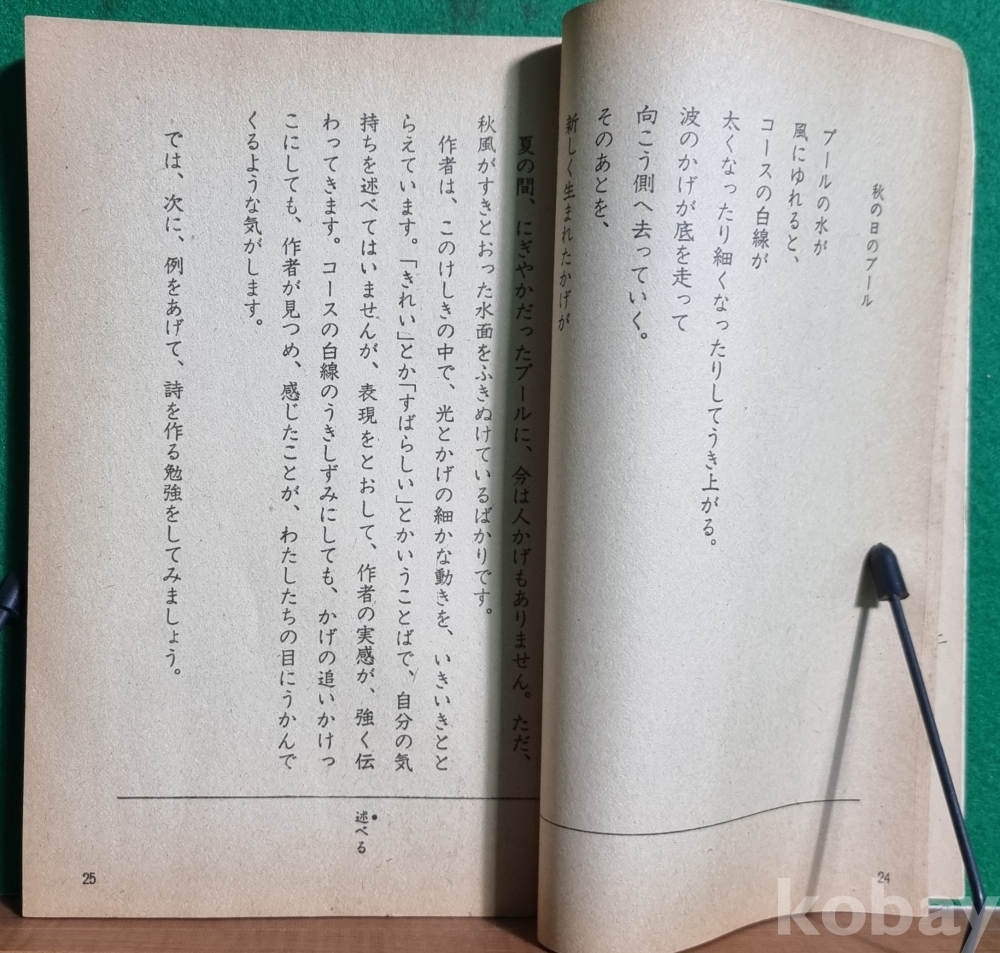 秋の日のプール
プールの水が
風にゆれると、
コースの白線が
太くなったり細くなったりしてうき上がる。
波のかげが底を走って
向こう側へ去っていく。
そのあとを、
新しく生まれたかげが
24
夏の間、にぎやかだったプールに、今は人かげもありません。ただ、
秋風がすきとおった水面をふきぬけているばかりです。
作者は、このけしきの中で、光とかげの細かな動きを、いきいきとと
らえています。「きれい」とか「すばらしい」とかいうことばで、自分の気
持ちを述べてはいませんが、表現をとおして、作者の実感が、強く伝
わってきます。コースの白線のうきしずみにしても、かげの追いかけっ
こにしても、作者が見つめ、感じたことが、わたしたちの目にうかんで
くるような気がします。
では、次に、例をあげて、詩を作る勉強をしてみましょう。
述べる
25
kobay